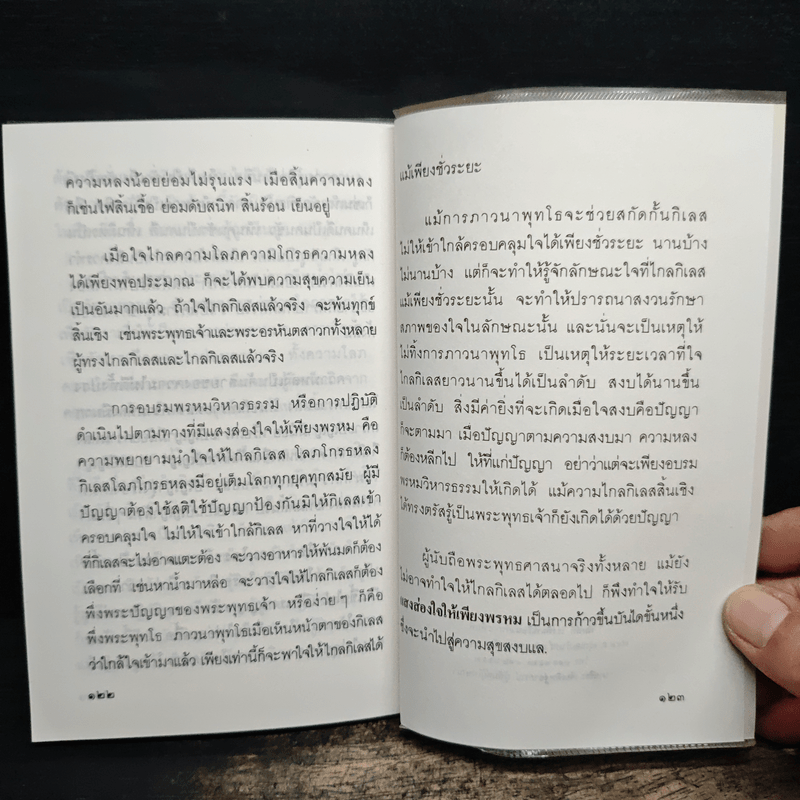 ความหลงน้อยย่อมไม่รุนแรง เมื่อสิ้นความหลง
ก็เช่นไฟสิ้นเชื้อ ย่อมดับสนิท สิ้นร้อน เย็นอยู่
เมื่อใจไกลความโลภความโกรธความหลง
ได้เพียงพอประมาณ ก็จะได้พบความสุขความเย็น
เป็นอันมากแล้ว ถ้าใจไกลกิเลสแล้วจริง จะพ้นทุกข์
สิ้นเชิง เช่นพระพุทธเจ้าและพระอรหันตสาวกทั้งหลาย
ผู้ทรงไกลกิเลสและไกลกิเลสแล้วจริง
การอบรมพรหมวิหารธรรม หรือการปฏิบัติ
ดำเนินไปตามทางที่มีแสงส่องใจให้เพียงพรหม คือ
ความพยายามนำใจให้ไกลกิเลส โลภโกรธหลง
กิเลสโลภโกรธหลงมีอยู่เต็มโลกทุกยุคทุกสมัย ผู้มี
ปัญญาต้องใช้สติใช้ปัญญาป้องกันมิให้กิเลสเข้า
ครอบคลุมใจ ไม่ให้ใจเข้าใกล้กิเลส หาที่วางใจให้ได้
ที่กิเลสจะไม่อาจแตะต้อง จะวางอาหารให้พ้นมดก็ต้อง
เลือกที่ เช่นหาน้ำมาหล่อ จะวางใจให้ไกลกิเลสก็ต้อง
พึ่งพระปัญญาของพระพุทธเจ้า หรือง่ายๆ ก็คือ
พึ่งพระพุทโธ ภาวนาพุทโธเมื่อเห็นหน้าตาของกิเลส
ว่าใกล้ใจเข้ามาแล้ว เพียงเท่านี้ก็จะพาใจให้ไกลกิเลสได้
๑๒๒
แม้เพียงชั่วระยะ
แม้การภาวนาพุทโธจะช่วยสกัดกั้นกิเลส
ไม่ให้เข้าใกล้ครอบคลุมใจได้เพียงชั่วระยะ นานบ้าง
ไม่นานบ้าง แต่ก็จะทำให้รู้จักลักษณะใจที่ไกลกิเลส
แม้เพียงชั่วระยะนั้น จะทำให้ปรารถนาสงวนรักษา
สภาพของใจในลักษณะนั้น และนั่นจะเป็นเหตุให้
ไม่ทิ้งการภาวนาพุทโธ เป็นเหตุให้ระยะเวลาที่ใจ
ไกลกิเลสยาวนานขึ้นได้เป็นลำดับ สงบได้นานขึ้น
เป็นลำดับ สิ่งมีค่ายิ่งที่จะเกิดเมื่อใจสงบคือปัญญา
ก็จะตามมา เมื่อปัญญาตามความสงบมา ความหลง
ก็ต้องหลีกไป ให้ที่แก่ปัญญา อย่าว่าแต่จะเพียงอบรม
พรหมวิหารธรรมให้เกิดได้ แม้ความไกลกิเลสสิ้นเชิง
ได้ทรงตรัสรู้เป็นพระพุทธเจ้าก็ยังเกิดได้ด้วยปัญญา
ผู้นับถือพระพุทธศาสนาจริงทั้งหลาย แม้ยัง
ไม่อาจทำใจให้ไกลกิเลสได้ตลอดไป ก็พึงทำใจให้รับ
แสงส่องใจให้เพียงพรหม เป็นการก้าวขึ้นบันไดขั้นหนึ่ง
ซึ่งจะนำไปสู่ความสุขสงบแล.
๑๒๓